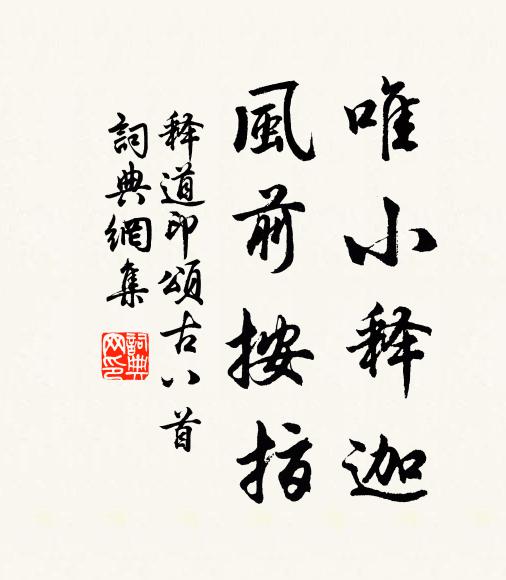 唯小释迦
風前按指
释道印頌古八首
詞典網集
詞典網印